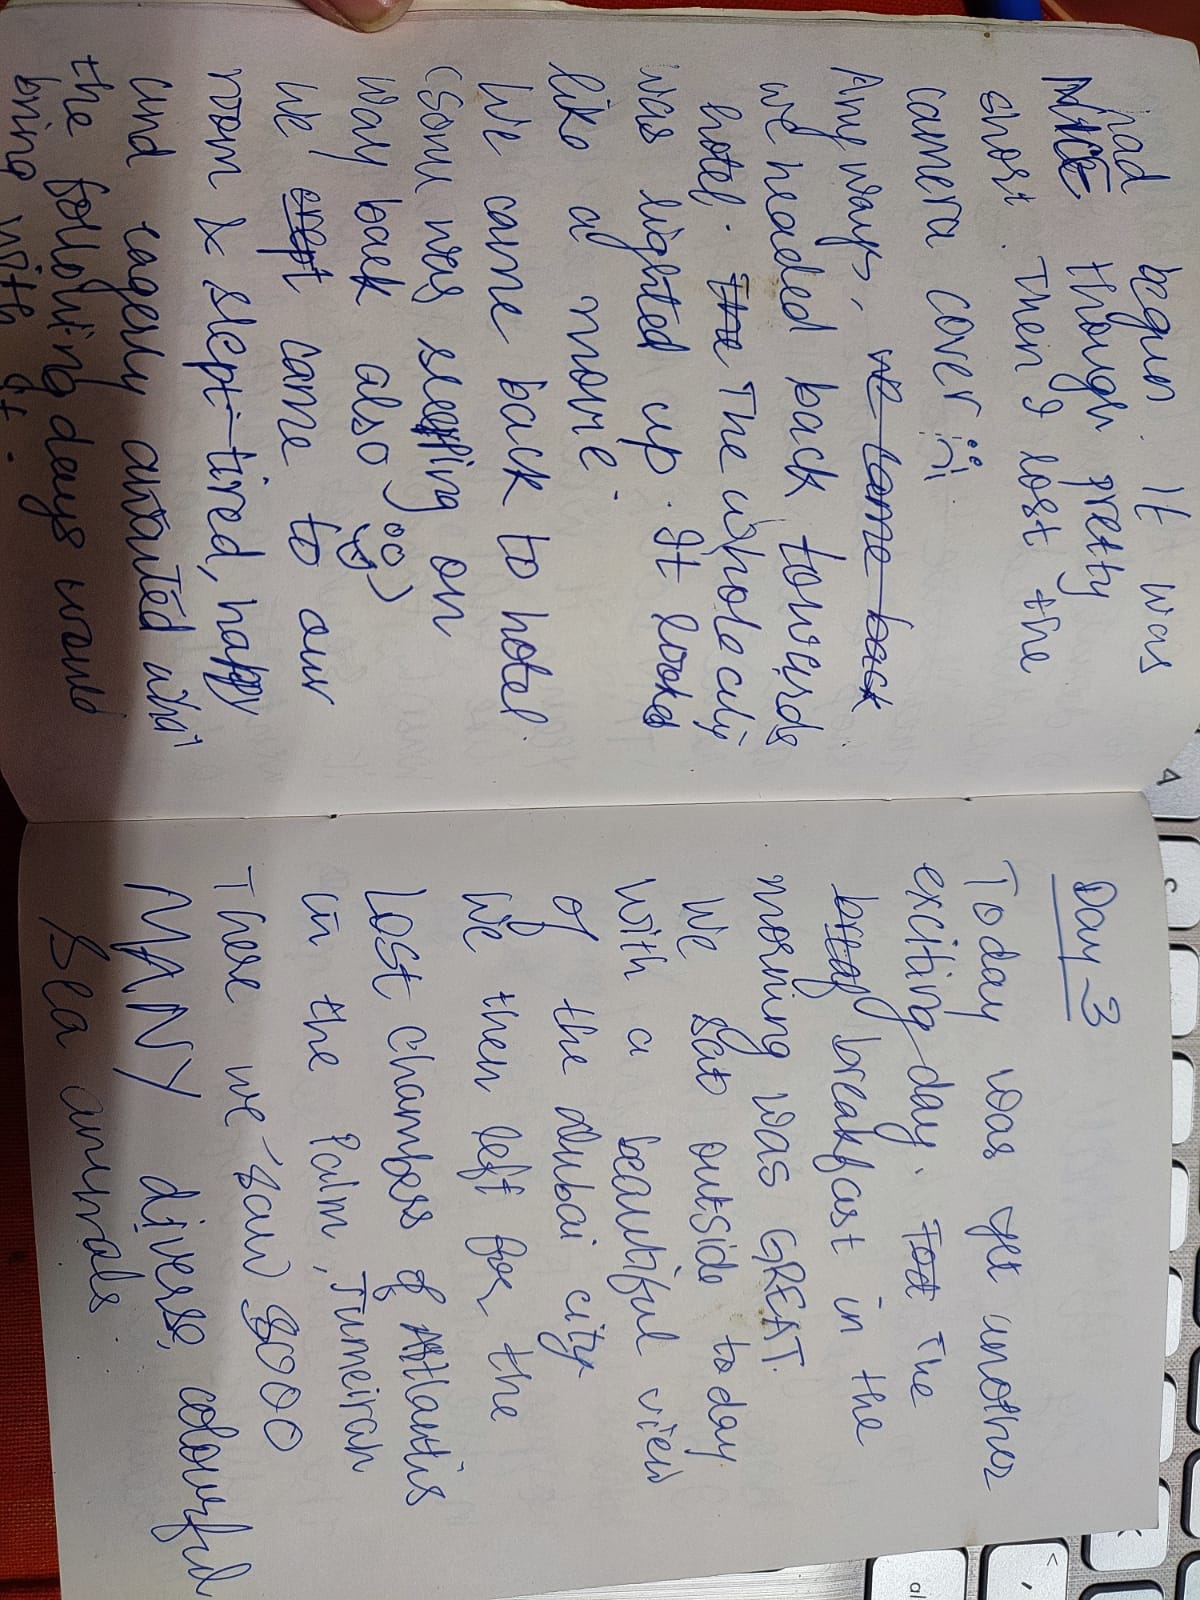 had begun. It was
NICE though pretty
short. Then I lost the
camera cover
Any ways, we came back
we headed back towards
hotel. The The whole city
was lighted up. It looked
like a movie.
We came back to hotel.
(Some was sleeping on
way back also)
We crept came to our
room & slept-tired, happy
and eagerly awaited what
the following days would
bring with it.
Day-3
Today was yet another
exciting day. The
breakfast in the
morning was GREAT.
We sat outside today
with a beautiful view
of the dubai city
We then left for the
Lost chambers of Atlantis
in the Palm, Jumeirah
There we saw SOOO
MANY diverse, colourful
Sea animals.